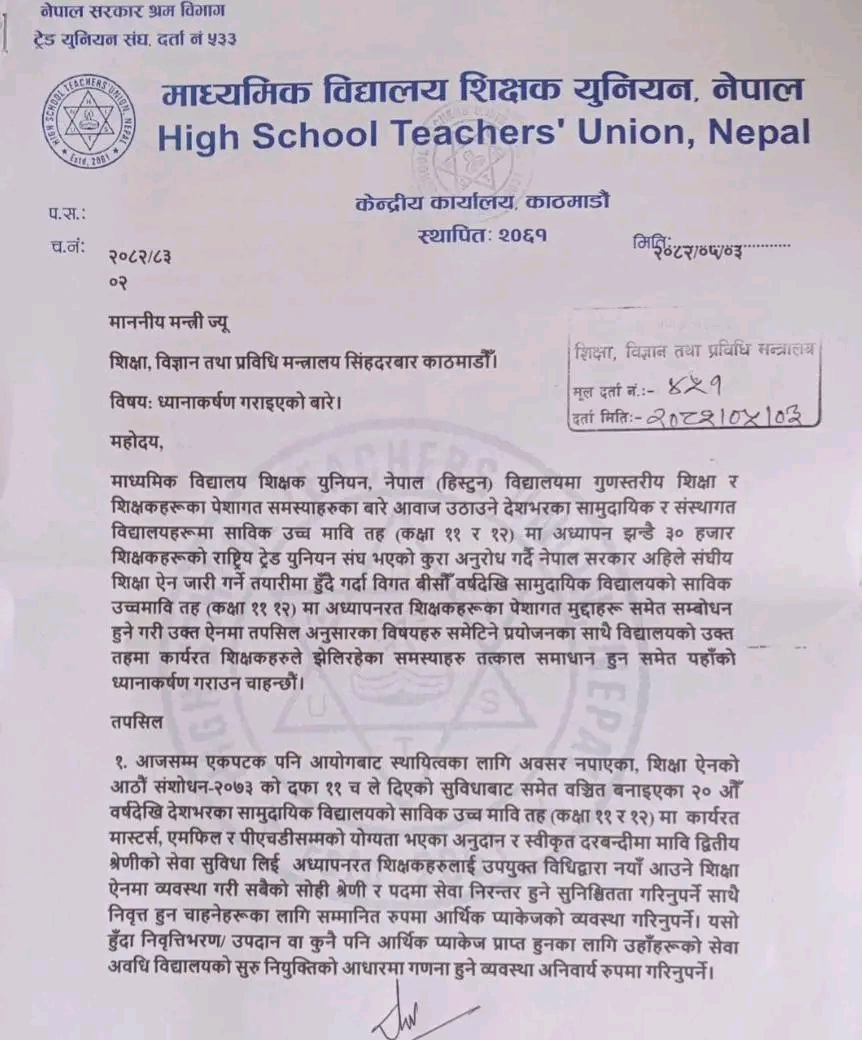 नेपाल सरकार श्रम विभाग
ट्रेड युनियन संघ, दर्ता नं ५३३
HIGH SCHOOL TEACHERS' UNION, NEPAL
Estd, 2061
माध्यमिक विद्यालय शिक्षक युनियन, नेपाल
High School Teachers' Union, Nepal
केन्द्रीय कार्यालय, काठमाडौं
स्थापितः २०६१
प.स.:
च.नं:
मितिः २०८२/०५/०३
२०८२/८३
०२
माननीय मन्त्री ज्यू
शिक्षा, विज्ञान तथा प्रविधि मन्त्रालय सिंहदरबार काठमाडौँ।
शिक्षा, विज्ञान तथा प्रविधि मन्त्रालय
मूल दर्ता नं.:- ४५१
दर्ता मिति:- २०८२।०५।०३
विषय: ध्यानाकर्षण गराइएको बारे।
महोदय,
माध्यमिक विद्यालय शिक्षक युनियन, नेपाल (हिस्टुन) विद्यालयमा गुणस्तरीय शिक्षा र
शिक्षकहरूका पेशागत समस्याहरुका बारे आवाज उठाउने देशभरका सामुदायिक र संस्थागत
विद्यालयहरूमा साविक उच्च मावि तह (कक्षा ११ र १२) मा अध्यापन झन्डै ३० हजार
शिक्षकहरूको राष्ट्रिय ट्रेड युनियन संघ भएको कुरा अनुरोध गर्दै नेपाल सरकार अहिले संघीय
शिक्षा ऐन जारी गर्ने तयारीमा हुँदै गर्दा विगत बीसौँ वर्षदेखि सामुदायिक विद्यालयको साविक
उच्चमावि तह (कक्षा ११ १२) मा अध्यापनरत शिक्षकहरूका पेशागत मुद्दाहरू समेत सम्बोधन
हुने गरी उक्त ऐनमा तपसिल अनुसारका विषयहरु समेटिने प्रयोजनका साथै विद्यालयको उक्त
तहमा कार्यरत शिक्षकहरुले झेलिरहेका समस्याहरु तत्काल समाधान हुन समेत यहाँको
ध्यानाकर्षण गराउन चाहन्छौं।
तपसिल
१. आजसम्म एकपटक पनि आयोगबाट स्थायित्वका लागि अवसर नपाएका, शिक्षा ऐनको
आठौं संशोधन-२०७३ को दफा ११ च ले दिएको सुविधाबाट समेत वञ्चित बनाइएका २० औँ
वर्षदेखि देशभरका सामुदायिक विद्यालयको साविक उच्च मावि तह (कक्षा ११ र १२) मा कार्यरत
मास्टर्स, एमफिल र पीएचडीसम्मको योग्यता भएका अनुदान र स्वीकृत दरबन्दीमा मावि द्वितीय
श्रेणीको सेवा सुविधा लिई अध्यापनरत शिक्षकहरुलाई उपयुक्त विधिद्वारा नयाँ आउने शिक्षा
ऐनमा व्यवस्था गरी सबैको सोही श्रेणी र पदमा सेवा निरन्तर हुने सुनिश्चितता गरिनुपर्ने साथै
निवृत्त हुन चाहनेहरूका लागि सम्मानित रुपमा आर्थिक प्याकेजको व्यवस्था गरिनुपर्ने। यसो
हुँदा निवृत्तिभरण/ उपदान वा कुनै पनि आर्थिक प्याकेज प्राप्त हुनका लागि उहाँहरूको सेवा
अवधि विद्यालयको सुरु नियुक्तिको आधारमा गणना हुने व्यवस्था अनिवार्य रुपमा गरिनुपर्ने।